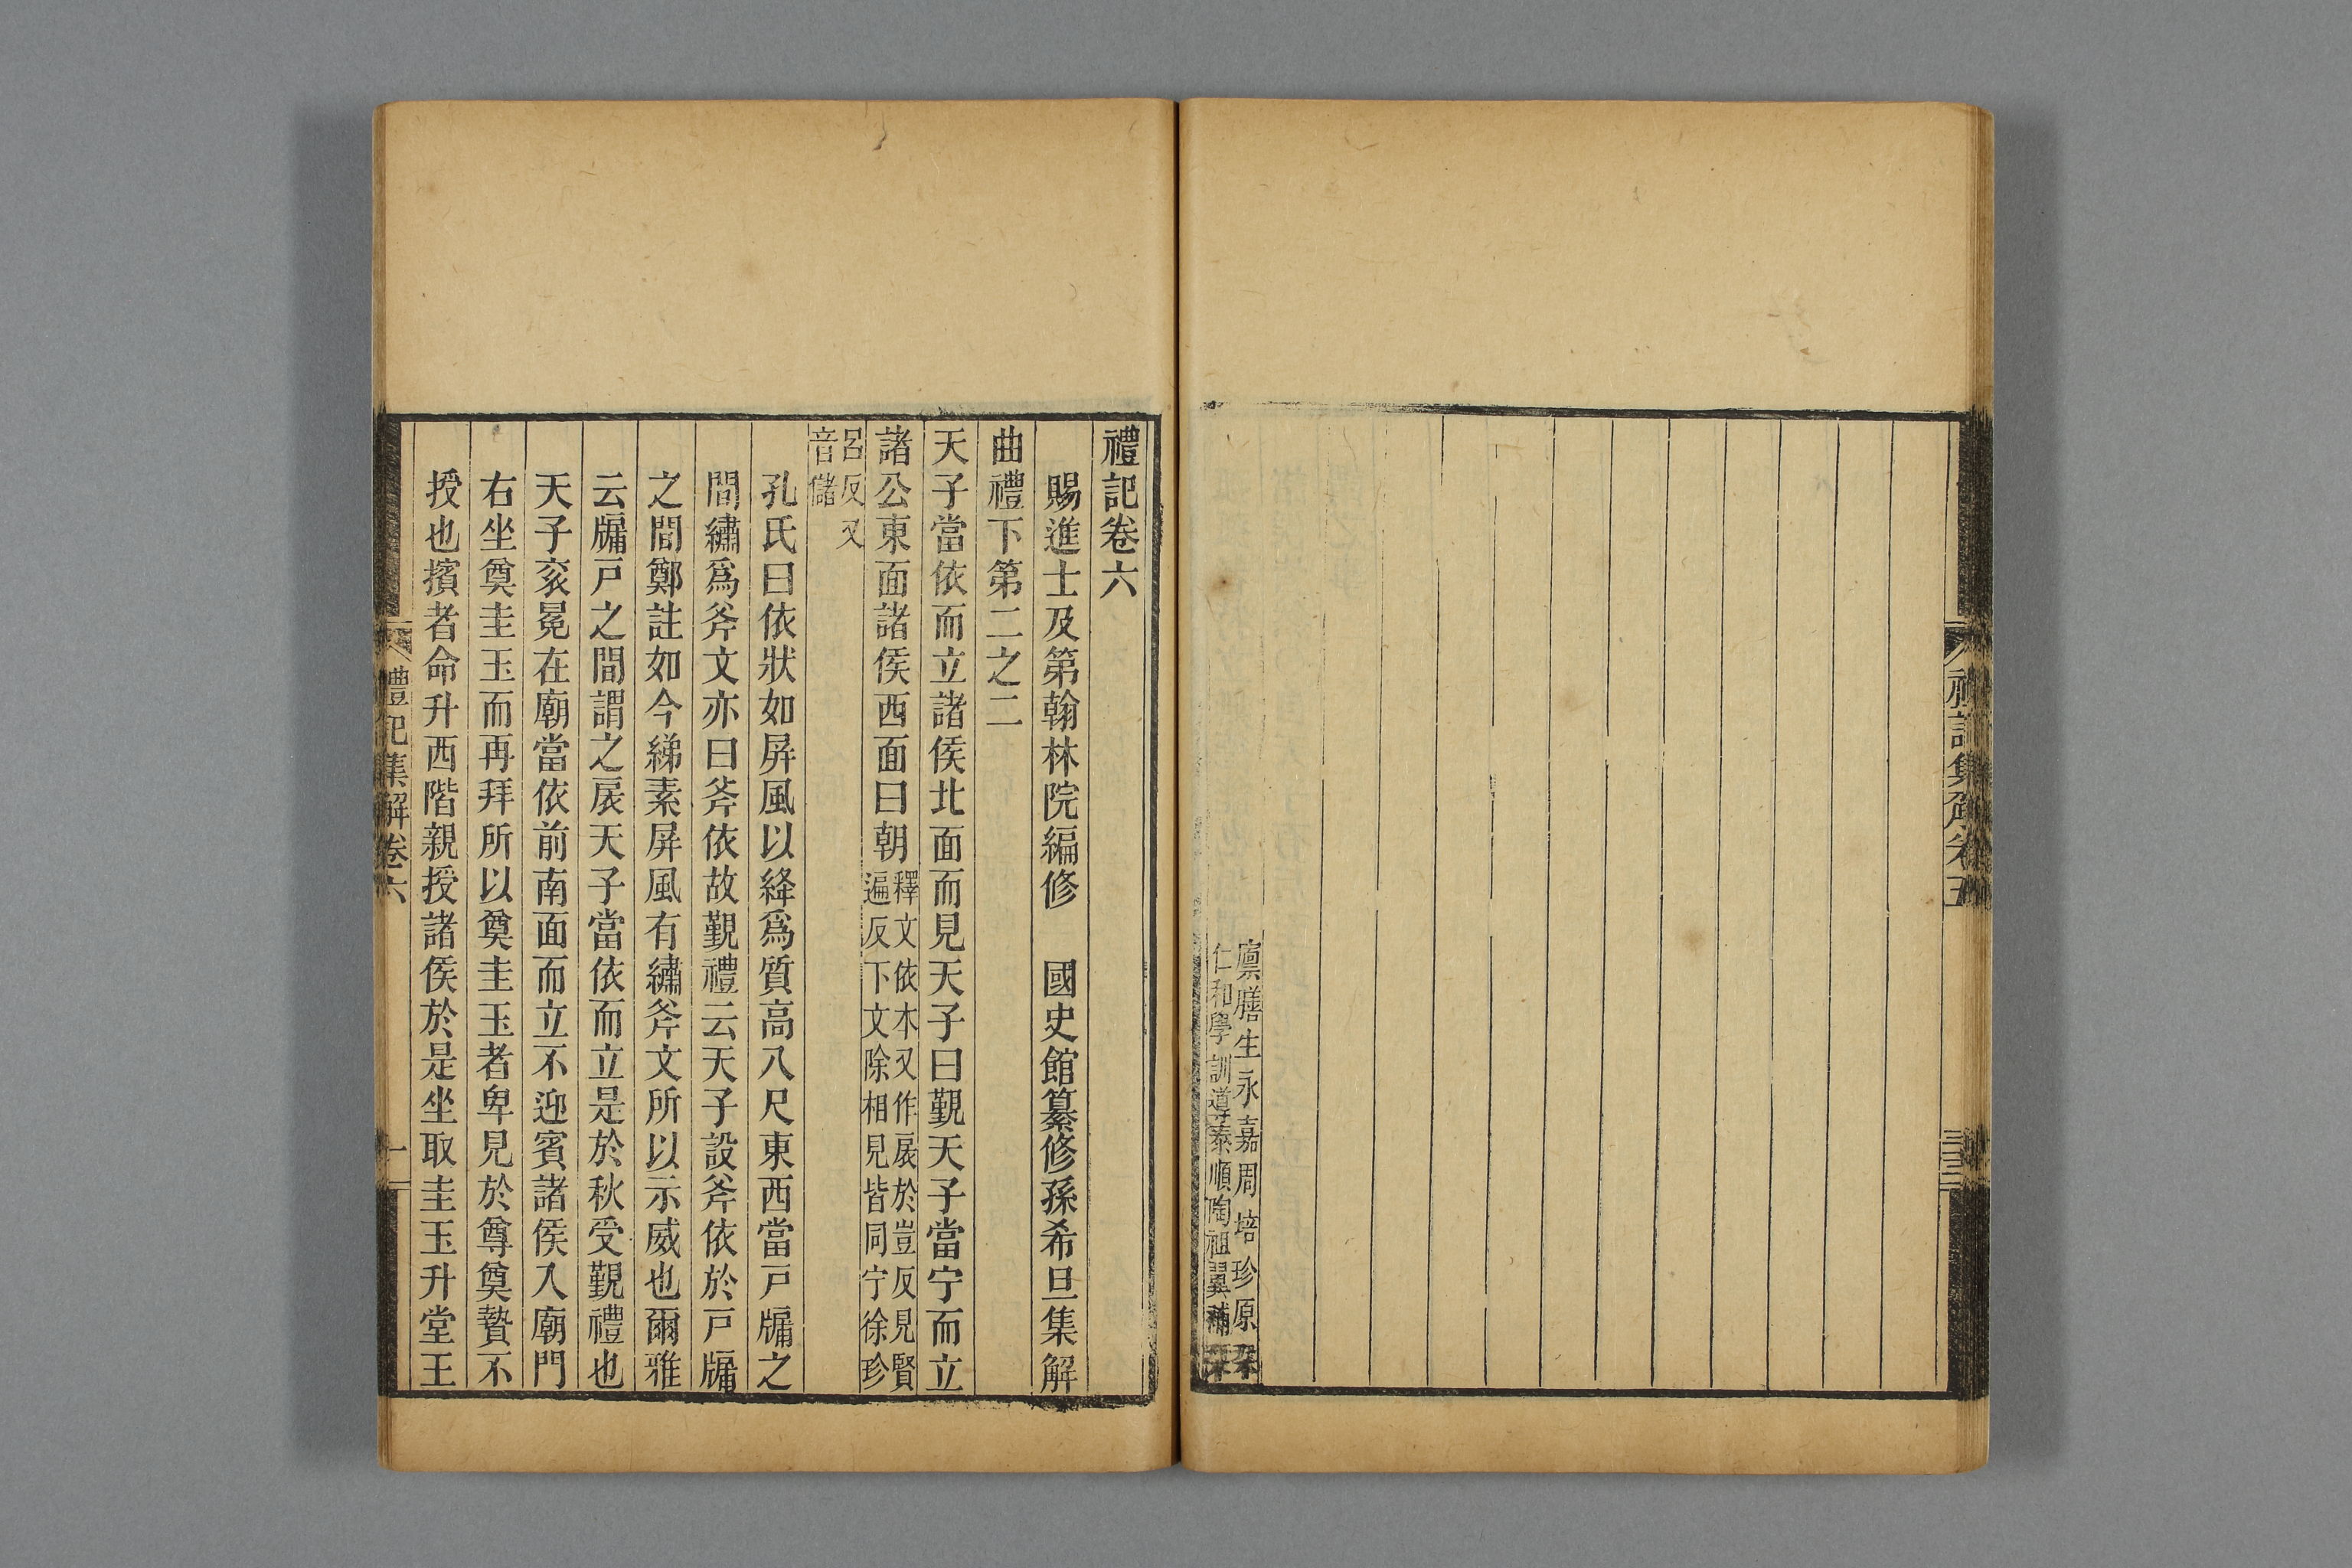 禮記集解卷五
三三
廩膳生永嘉周培珍原栞
仁和學訓道泰順陶祖翼補栞
禮記卷六
賜進士及第翰林院編修　國史館纂修孫希旦集解
曲禮下第二之二
天子當依而立諸侯北面而見天子曰覲天子當宁而立
諸公東面諸侯西面曰朝釋文依本又作扆於豈反見賢
遍反下文除相見皆同宁徐珍
呂反又
音儲
孔氏曰依狀如屏風以絳爲質高八尺東西當戸牖之
間繡爲斧文亦曰斧依故覲禮云天子設斧依於戸牖
之間鄭註如今綈素屏風有繡斧文所以示威也爾雅
云牖戸之間謂之扆天子當依而立是於秋受覲禮也
天子衮冕在廟當依前南面而立不迎賓諸侯入廟門
右坐奠圭玉而再拜所以奠圭玉者卑見於尊奠贄不
授也擯者命升西階親授諸侯於是坐取圭玉升堂王
禮記集解卷六
一